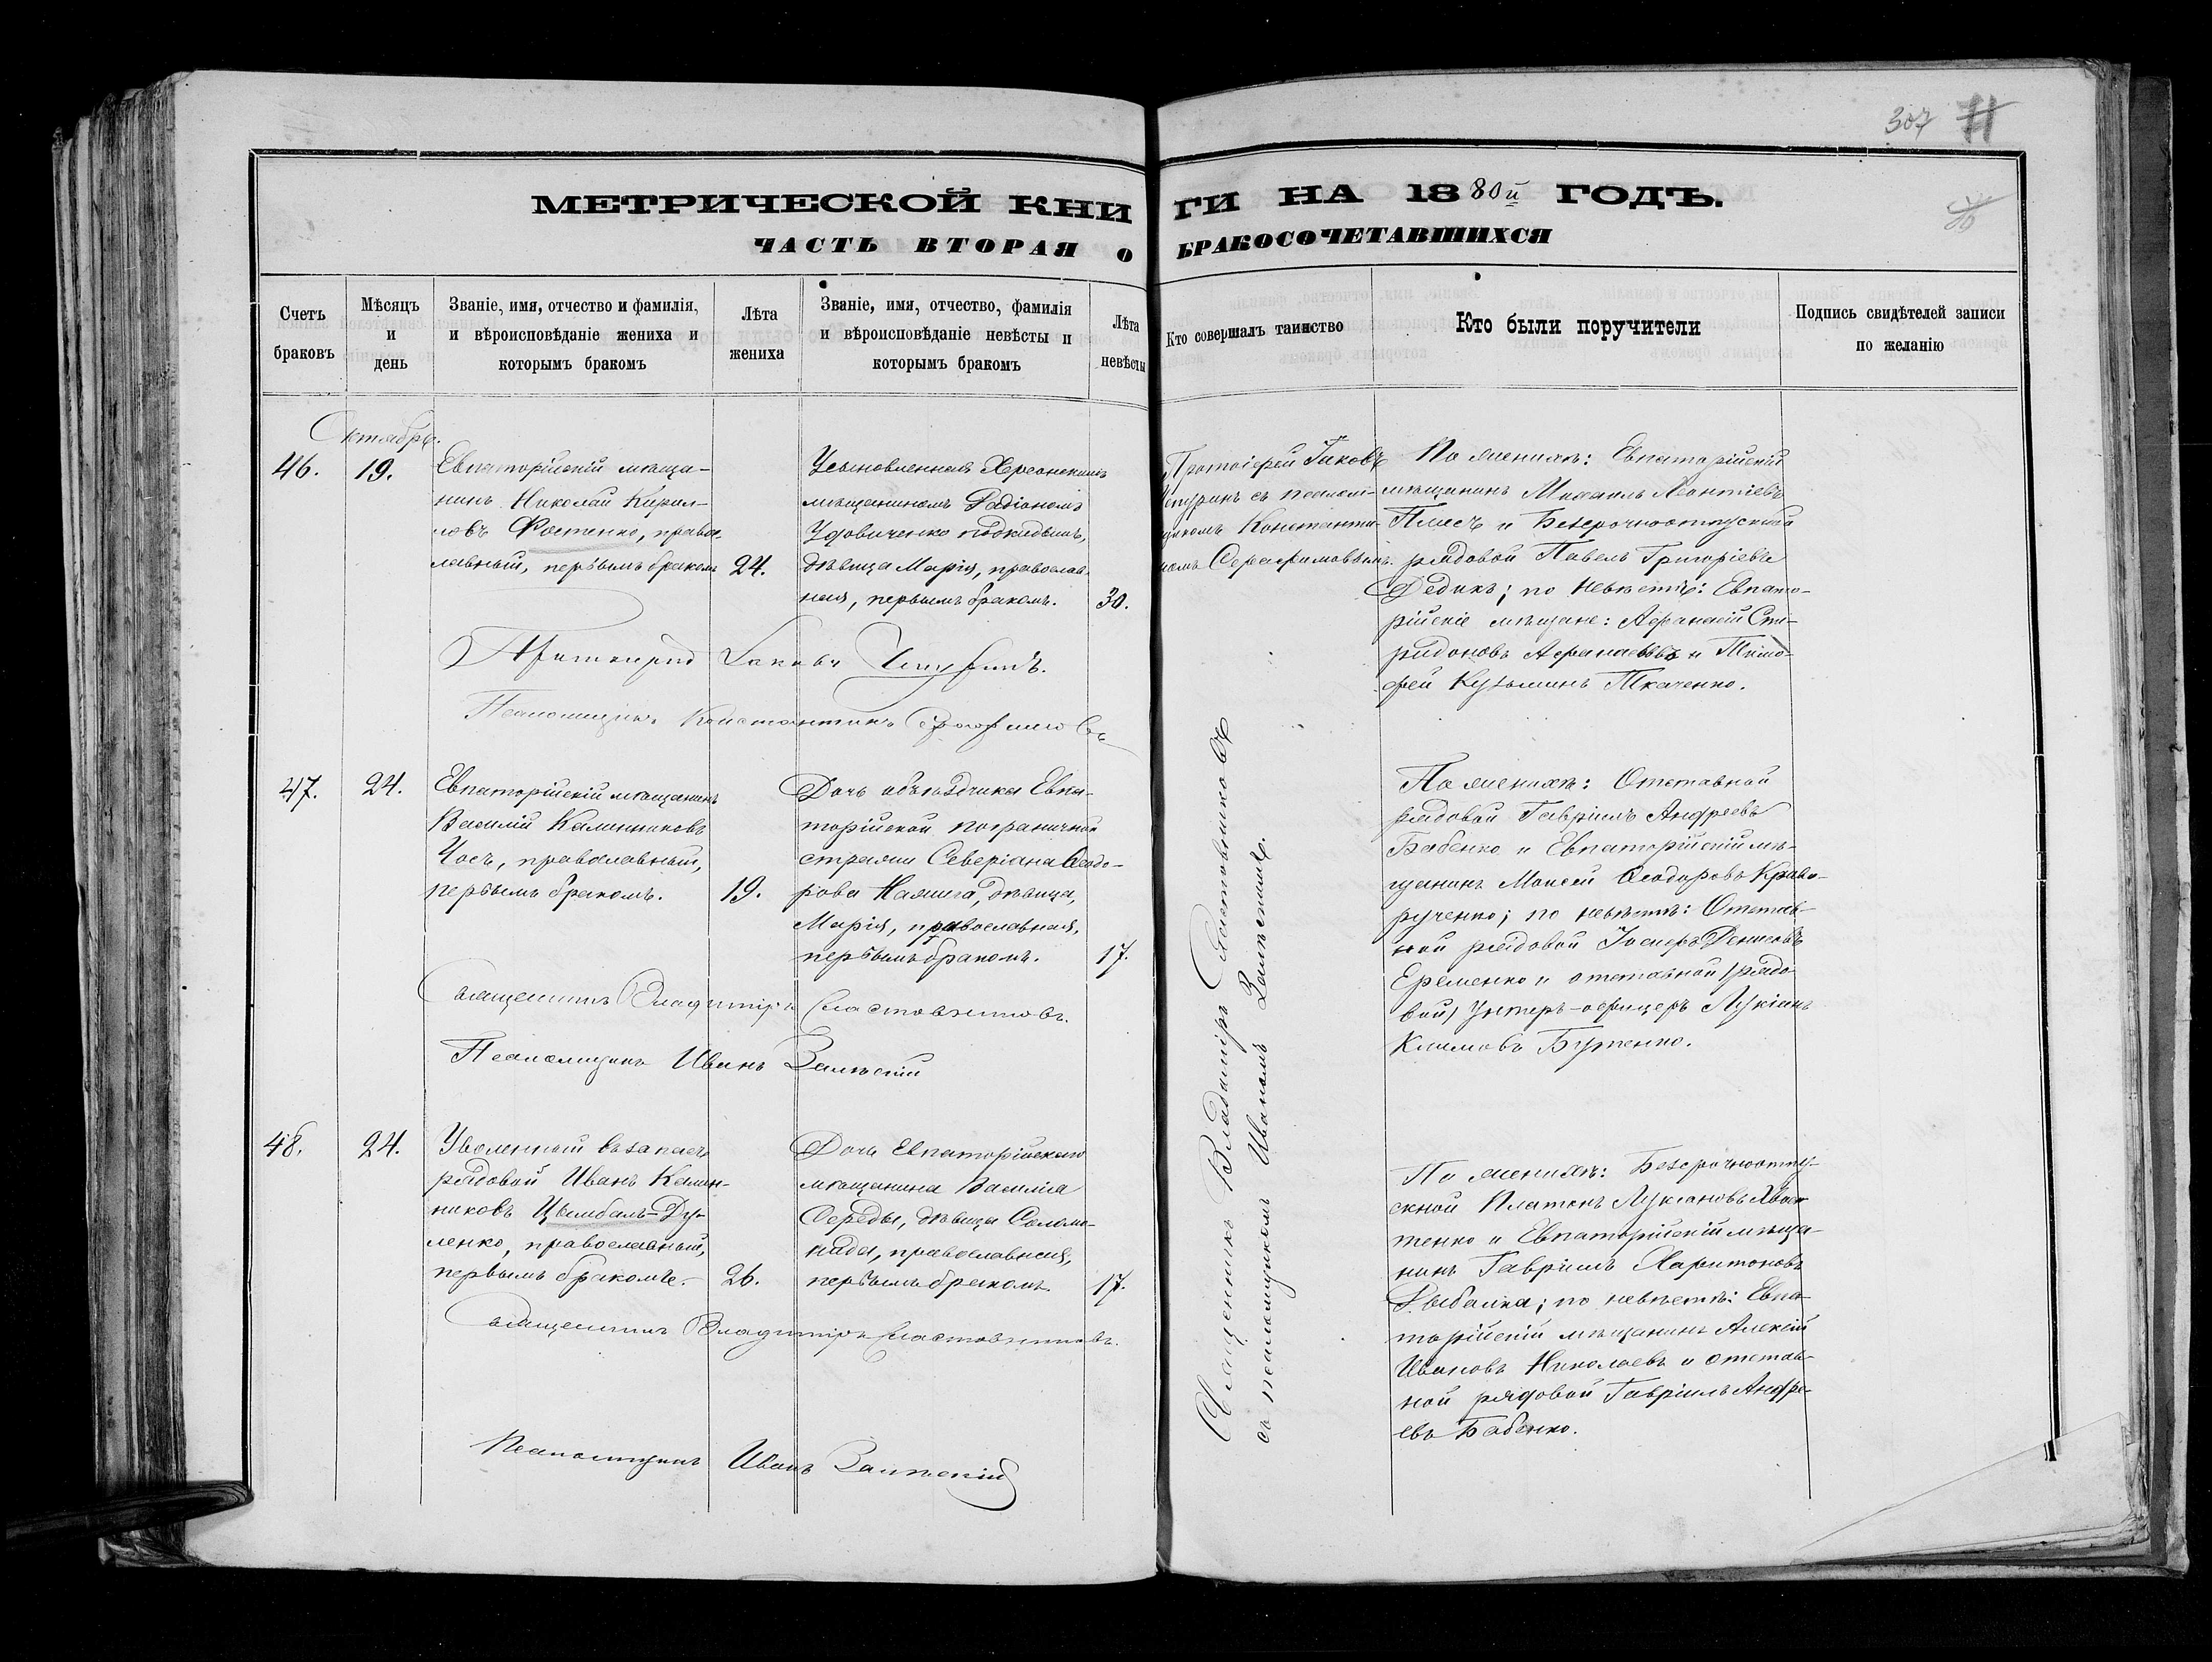 307 71
МЕТРИЧЕСКОЙ КНИГИ НА 1880й ГОДЪ.
ЧАСТЬ ВТОРАЯ О БРАКОСОЧЕТАВШИХСЯ
Счетъ браковъ
Мѣсяцъ и день
Званіе, имя, отчество и фамилія, и вѣроисповѣданіе жениха и которымъ бракомъ
Лѣта жениха
Званіе, имя, отчество, фамилія и вѣроисповѣданіе невѣсты и которымъ бракомъ
Лѣта невѣсты
Кто совершалъ таинство
Кто были поручители
Подпись свидѣтелей записи по желанію
Октябрь.
46.
19.
Евпаторійскій мѣща-
нинъ Николай Кирил-
ловъ Фостенко, право-
лавный, первымъ бракомъ
24.
Усыновленная Херсонскимъ
мѣщаниномъ Радіономъ
Удовиченко подкидышъ,
дѣвица Марія, православ-
ная, первымъ бракомъ.
30.
Протоіерей Іаковъ
Чепуринъ съ псалом-
щикомъ Константи-
номъ Серафимовымъ.
По женихѣ: Евпаторійскій
мѣщанинъ Михаилъ Леонтіевъ
и Безсрочноотпускной
рядовой Павелъ Григоріевъ
Дедикъ; по невѣстѣ: Евпато-
рійскіе мѣщане: Афанасій Спи-
ридоновъ Афанасьевъ и Тимо-
фей Кузьминъ Ткаченко.
Протоіерей Іаковъ Чепуринъ.
Псаломщикъ Константинъ Серафимовъ
47.
24.
Евпаторійскій мѣщанинъ
Василій Калинниковъ
Чосъ, православный,
первымъ бракомъ.
19.
Дочь объѣздчика Евпа-
торійской пограничной
стражи Северіана Ѳеодо-
рова дѣвица,
Марія, православная,
первымъ бракомъ.
17.
По женихѣ: Отставной
рядовой Гавріилъ Андреевъ
Бабенко и Евпаторійскій мѣ-
щанинъ Моисей Ѳеодоровъ Криво-
рученко; по невѣстѣ: Отстав-
ной рядовой Іосифъ Денисовъ
Еременко и отставной (рядо-
вой) Унтеръ-офицеръ Лукіанъ
Климовъ Бутенко.
Священникъ Владиміръ Сластовниковъ.
Псаломщикъ Иванъ Залѣскій
Священникъ Владиміръ Сластовниковъ
съ псаломщикомъ Иваномъ Залѣскимъ.
48.
24.
Уволенный въ запасъ
рядовой Иванъ Калин-
никовъ Цымбалъ-Ду-
ленко, православный,
первымъ бракомъ.
26.
Дочь Евпаторійскаго
мѣщанина Василія
Середы, дѣвица Соломо-
нида, православная,
первымъ бракомъ.
17.
По женихѣ: Безсрочноотпу-
скной Платонъ Лукіановъ
тенко и Евпаторійскій мѣща-
нинъ Гавріилъ Харитоновъ
Рыбалка; по невѣстѣ: Евпа-
торійскій мѣщанинъ Алексій
Ивановъ Николаевъ и отстав-
ной рядовой Гавріилъ Андре-
евъ Бабенко.
Священникъ Владиміръ Сластовниковъ.
Псаломщикъ Иванъ Залѣскій